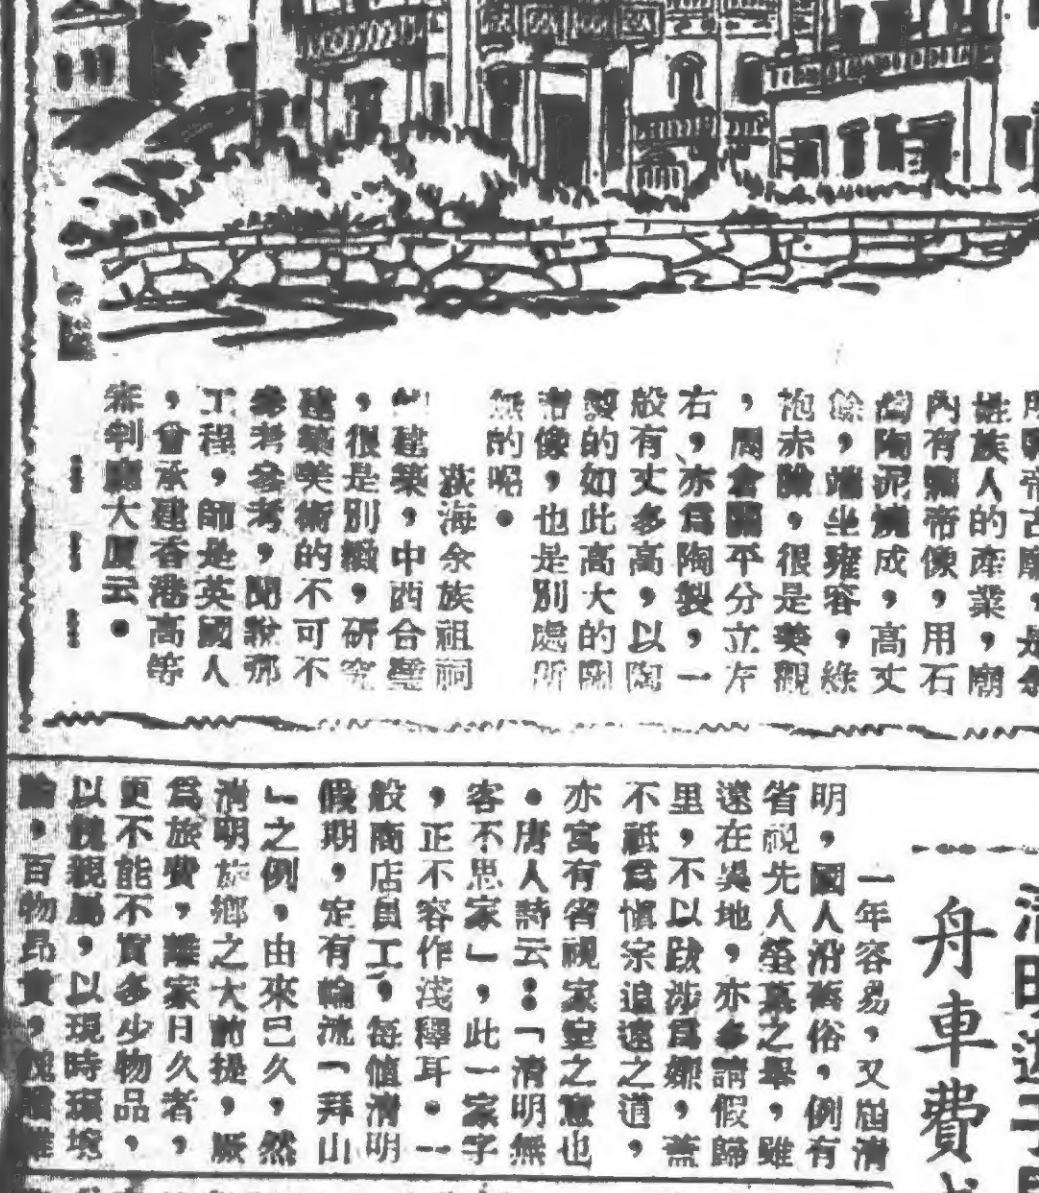 姓族人的產業，廟
內有關帝像，用石
灣陶泥燒成，高丈
餘，端坐雍容，綠
袍赤臉，很是美觀
，周倉關平分立左
右，亦爲陶製，一
般有丈多高，以陶
製的如此高大的關
帝像，也是別處所
無的呢。
荻海余族祖祠
的建築，中西合璧
，很是別緻，研究
建築美術的不可不
參考參考，聞說那
工程，師是英國人
，曾承建香港高等
審判廳大廈云。
清明遊子
舟車費
一年容易，又屆清
明，國人沿舊俗，例有
省視先人塋墓之舉，雖
遠在異地，亦多請假歸
里，不以跋涉爲嫌，蓋
不祇爲愼宗追遠之道，
亦寓有省視家室之意也
。唐人詩云：「清明無
客不思家」，此一家字
，正不容作淺釋耳。一
般商店員工，每値清明
假期，定有輪流「拜山
」之例，由來已久，然
清明旋鄉之大前提，厥
爲旅費，離家日久者，
更不能不買多少物品，
以餽親屬，以現時環境
論，百物昂貴，